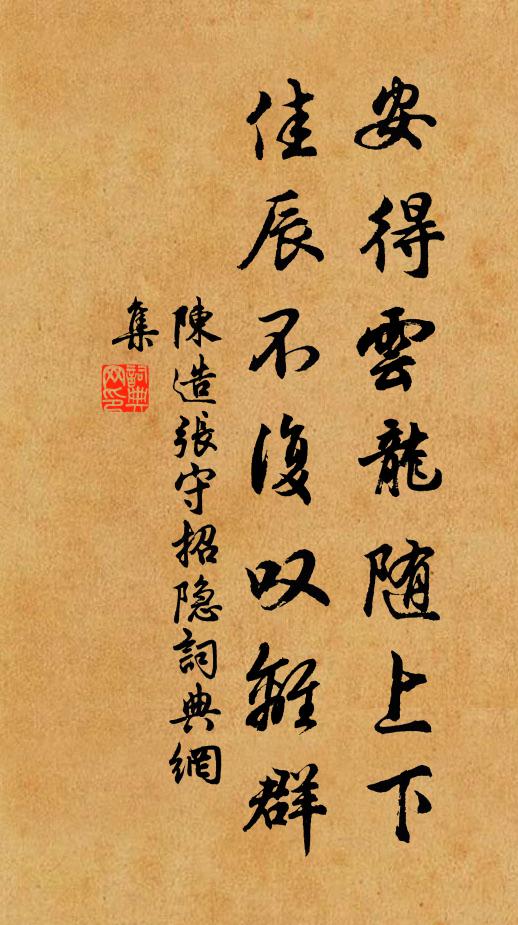 安得雲龍随上下
佳辰不復叹離群
陳造張守招隐詞典網
集
詞典
网印